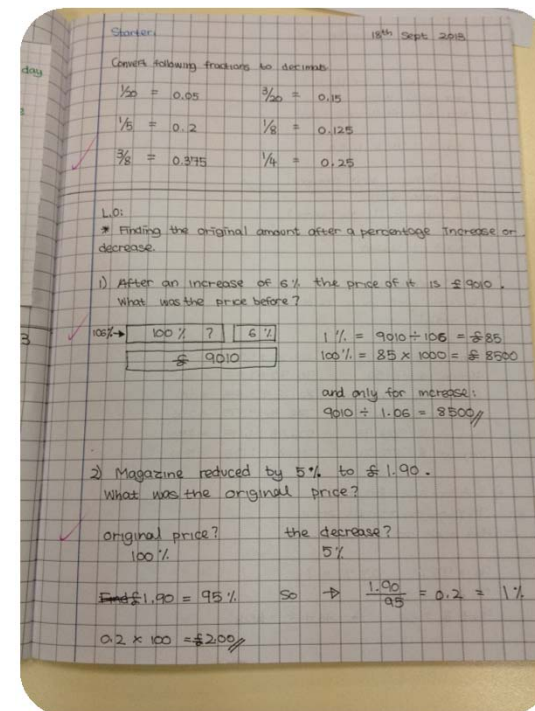 day
3
Starter: 18th Sept 2015
Convert following fractions to decimals
1/20 = 0.05 3/20 = 0.15
1/5 = 0.2 1/8 = 0.125
3/8 = 0.375 1/4 = 0.25
L.O:
* Finding the original amount after a percentage increase or
decrease.
1) After an increase of 6% the price of it is £9010.
What was the price before?
106%→ 100% ? 6% 1% = 9010÷106 = £85
£ 9010 100% = 85 x 1000 = £ 8500
and only for increase:
9010 ÷ 1.06 = 8500//
2) Magazine reduced by 5% to £1.90.
What was the original price?
original price? the decrease?
100% 5%
£1.90 = 95% so → 1.90/95 = 0.2 = 1%
0.2 x 100 = £2.00//